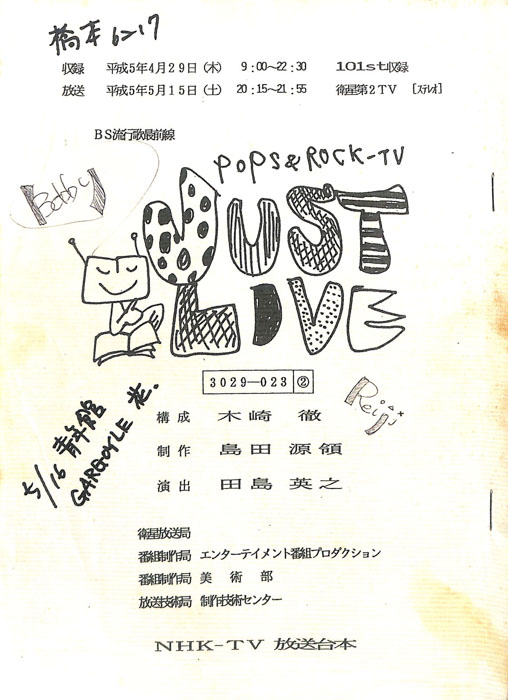 橋本 6=17
収録 平成5年4月29日(木) 9:00〜22:30 101st収録
放送 平成5年5月15日(土) 20:15〜21:55 衛星第2TV [ステレオ]
BS流行歌最前線
POPS&ROCK-TV
Bobby
JUST
LIVE
3029-023 ②
Reiji
構成 木崎 徹
制作 島田 源領
演出 田島 英之
5/16 青年館
GARGOYLE
衛星放送局
番組制作局 エンターテイメント番組プロダクション
番組制作局 美術部
放送技術局 制作技術センター
NHK-TV 放送台本